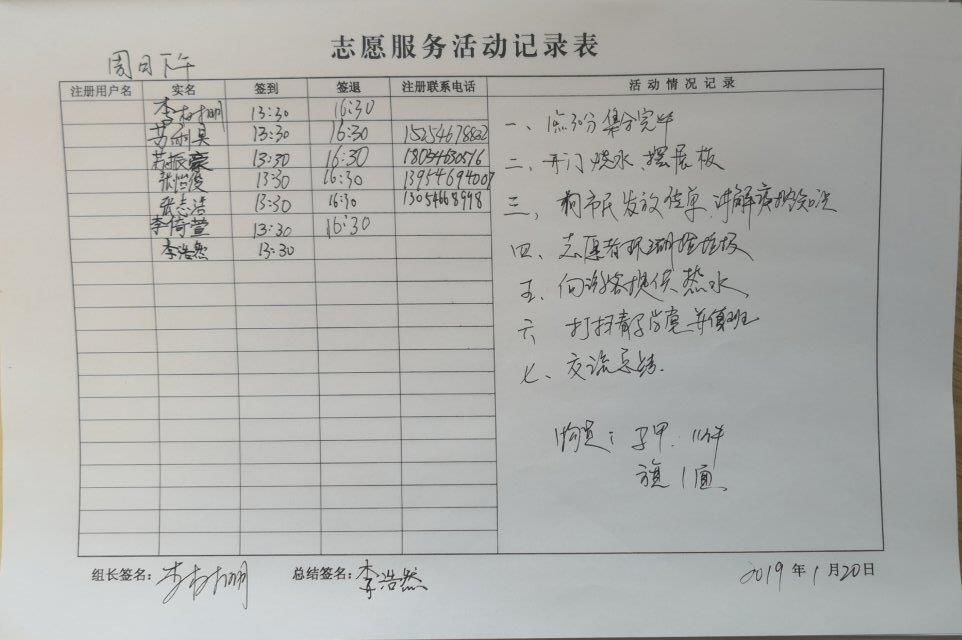 志愿服务活动记录表
周日下午
注册用户名 实名 签到 签退 注册联系电话 活动情况记录
13:30 16:30
13:30 16:30
13:30 16:30
13:30 16:30 13954694007
张志浩 13:30 16:30 13054668998
李倚萱 13:30 16:30
李浩然 13:30
一、 集合完毕
二、开门烧水、摆展板
三、向市民发放传单、讲解
四、志愿者环湖捡垃圾
五、向游客提供热水
六 打扫 并值班
七、交流总结.
物资: 马甲. 11件
旗 1面
组长签名: 总结签名: 李浩然 2019 年 1 月 20 日